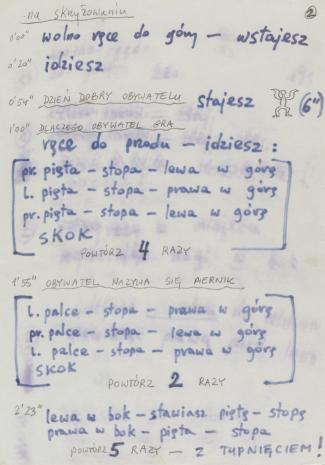 na skrzyżowaniu
2
0'00" wolno ręce do góry – wstajesz
0'20" idziesz
0'54" DZIEŃ DOBRY OBYWATELU stajesz (6")
1'00" DLACZEGO OBYWATEL GRA
ręce do przodu – idziesz :
pr. pięta – stopa – lewa w górę
l. pięta – stopa – prawa w górę
pr. pięta – stopa – lewa w górę
SKOK
POWTÓRZ 4 RAZY
1'55" OBYWATEL NAZYWA SIĘ PIERNIK
l. palce – stopa – prawa w górę
pr. palce – stopa – lewa w górę
l. palce – stopa – prawa w górę
SKOK
POWTÓRZ 2 RAZY
2'23" lewa w bok – stawiasz piętę – stopę
prawa w bok – pięta – stopa
POWTÓRZ 5 RAZY – Z TUPNIĘCIEM !